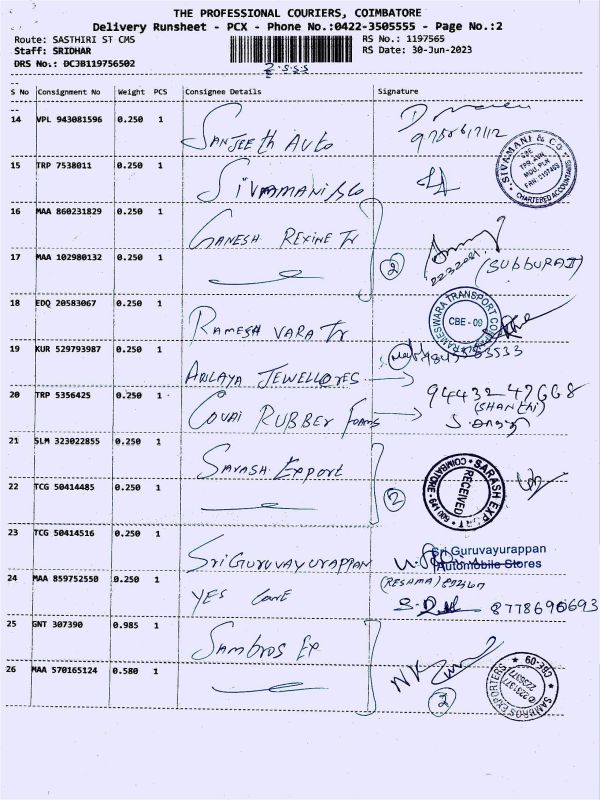 THE PROFESSIONAL COURIERS, COIMBATORE
Delivery Runsheet - PCX - Phone No.:0422-3505555 - Page No.:2
Route: SASTHIRI ST CMS RS No.: 1197565
Staff: SRIDHAR RS Date: 30-Jun-2023
DRS No.: DCJB119756502
S No Consignment No Weight PCS Consignee Details Signature
14 VPL 943081596 0.250 1 SANJEETH AUTO
SIVAMANI & CO
CBE
CHARTERED ACCOUNTANTS
15 TRP 7538011 0.250 1 SIVAMANI & CO
16 MAA 860231829 0.250 1 GANESH REXINE Tr
17 MAA 102980132 0.250 1 2 (SUBBURAJ)
18 EDQ 20583067 0.250 1 RAMESH VARA Tr
RAMESWARA TRANSPORT
CBE - 09
19 KUR 529793987 0.250 1 JEWELLORES
20 TRP 5356425 0.250 1 COVAI RUBBER Foams 9443247668
21 SLM 323022855 0.250 1 SARASH EXPORT
SARASH EXPORT
RECEIVED
COIMBATORE - 641 009
22 TCG 50414485 0.250 1 2
23 TCG 50414516 0.250 1 SRI GURUVAYURAPPAN
Sri Guruvayurappan
Automobile Stores
24 MAA 859752550 0.250 1 YES Care (RESHMA)
25 GNT 307390 0.985 1 SAMBROS EX
26 MAA 570165124 0.580 1 2
SAMBROS EXPORTERS
CBE-09